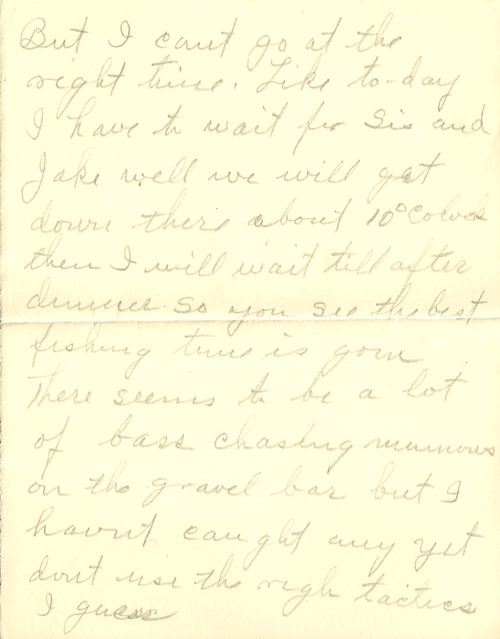 But I cant go at the
right time. Like to-day
I have to wait for Sis and
Jake well we will get
down there about 10°Colock
then I will wait till after
dinner so you see the best
fishing time is gon
There seems to be a lot
of bass chasing minnows
on the gravel bar but I
havnt caught any yet
dont use the righ tactics
I guess